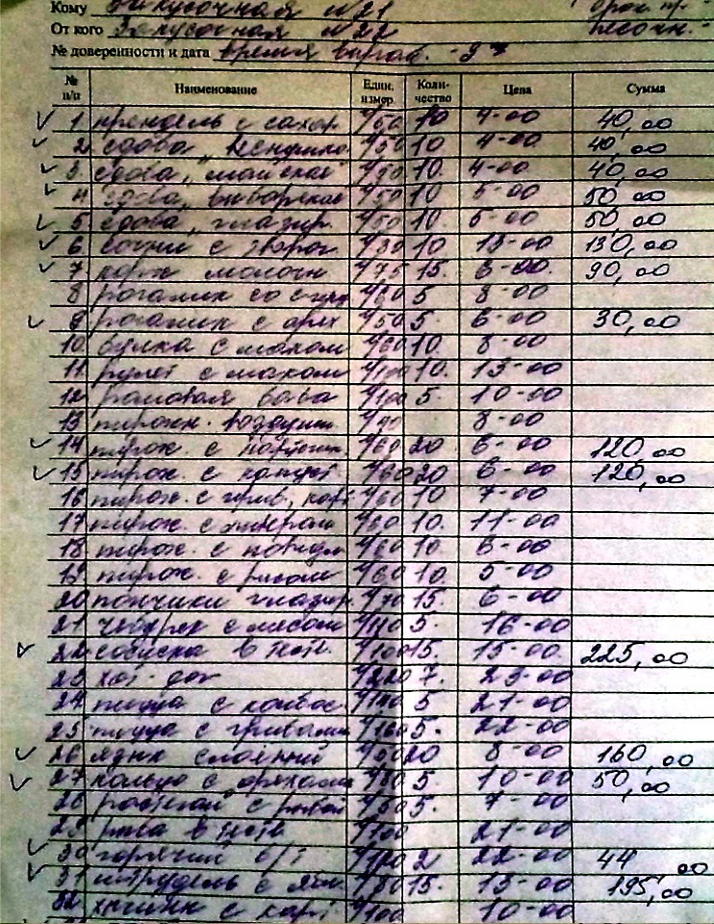 Кому Закусочная №21
От кого Закусочная №22
№ доверенности и дата время
№ п/п Наименование Един. измер. Коли-чество Цена Сумма
1 крендель с сахар. 1/50 10 4-00 40,00
2 сдоба 1/50 10 4-00 40,00
3 сдоба „майская 1/50 10. 4-00 40,00
4 сдоба „выборская 1/50 10. 5-00 50,00
5 сдоба „глазир. 1/50 10. 5-00 50,00
6 сочни с творог. 1/80 10 13-00 130,00
7 корж молочн 1/75 15. 6-00. 90,00
8 рогалик со сгущ 1/60 5 8-00
9 рогалик с орех 1/50 5. 6-00 30,00
10 булка с маком 1/60 10. 8-00
11 рулет с маком 1/100 10. 13-00
12 ромовая баба 1/100 5. 10-00
13 пирожн. воздушн. 8-00
14 пирож. с картош. 1/60 20 6-00 120,00
15 пирож. с капуст. 1/60 20 6-00 120,00
16 пирож. с гриб., карт 1/60 10 7-00
17 пирож. с ливером 1/60 10. 11-00
18 пирож. с повидл 1/60 10.
19 пирож. с рисом 1/60 10. 5-00
20 пончики глазир. 15. 6-00
21 чебурек с мясом 5. 16-00
22 сосиска в тесте 1/100 15. 15-00 225,00
23 хот-дог 7. 23-00
24 пицца с колбас. 5 21-00
25 пицца с грибами 1/160 5. 22-00
26 язык слоеный 1/50 20 8-00 160,00
27 кольцо с орехами 1/80 5. 10-00 50,00
28 расстегай с рыбой 1/50 5. 7-00
29 рыба в тесте 1/100 21-00
30 горячий б/т 2 22-00 44,00
31 штрудель с ябл. 1/80 15. 13-00 195,00
32 с карт. 1/100 10-00